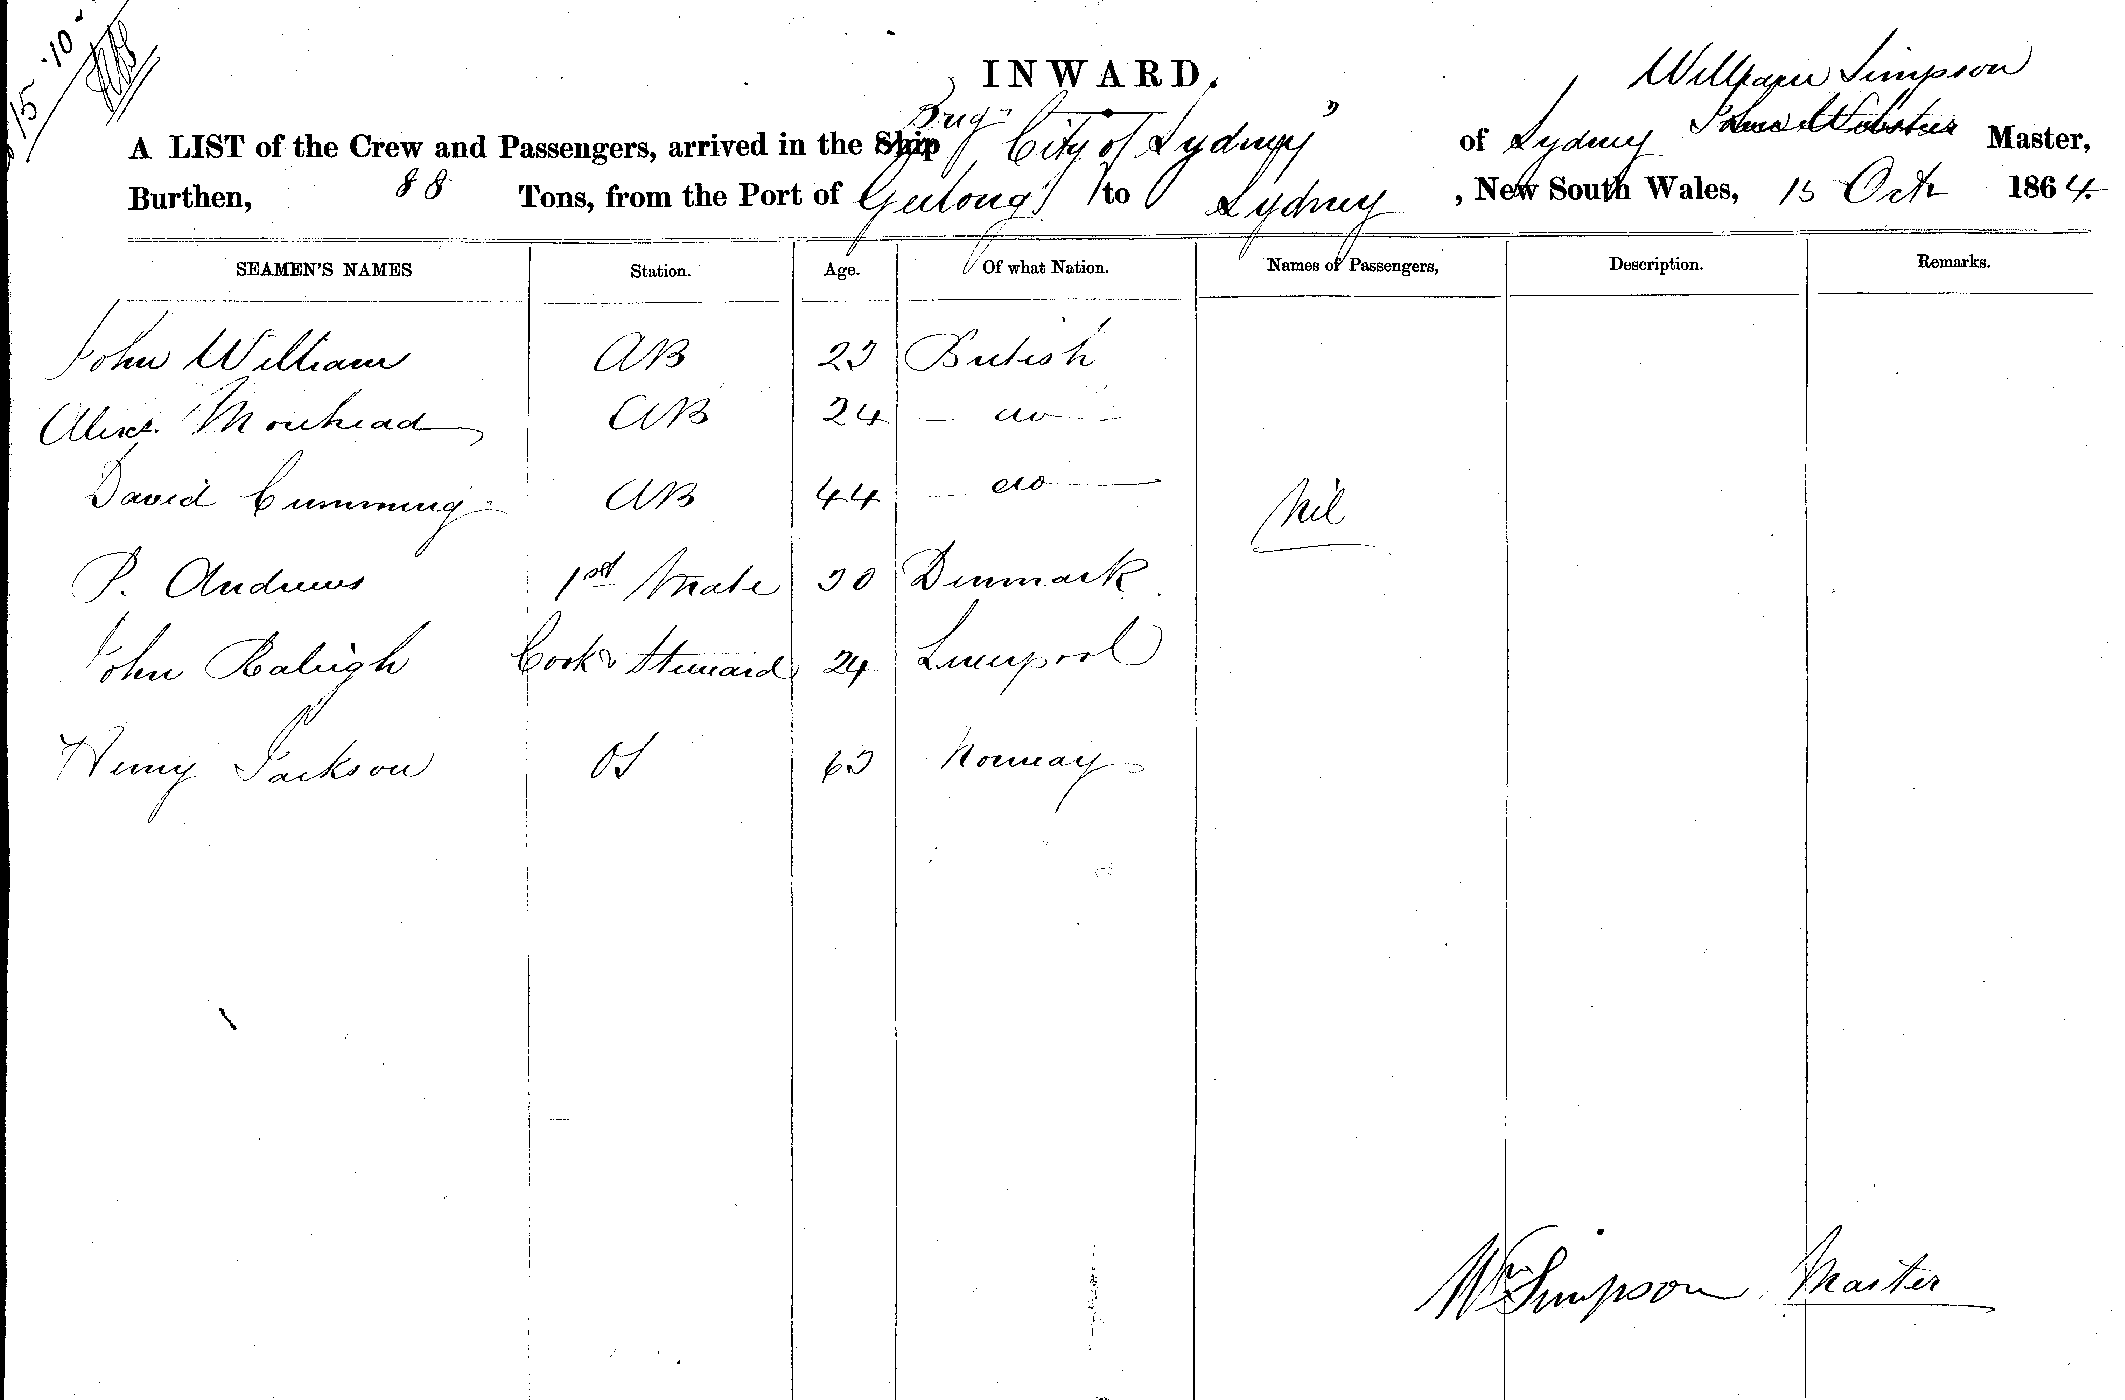 15/10
INWARD.
William Simpson
Brig
A LIST of the Crew and Passengers, arrived in the Ship "City of Sydney" of Sydney John Webster Master,
Burthen, 88 Tons, from the Port of Geelong to Sydney, New South Wales, 15 Oct 1864
SEAMEN'S NAMES Station. Age. Of what Nation. Names of Passengers, Description. Remarks.
John William AB 23 British
Alexr. Morehead AB 24 — do —
David Cumming AB 44 — do —
Nil
P. Andrews 1st Mate 30 Denmark
John Raleigh Cook & Steward 24 Liverpool
Henry Jackson OS 63 Norway
Wm Simpson Master